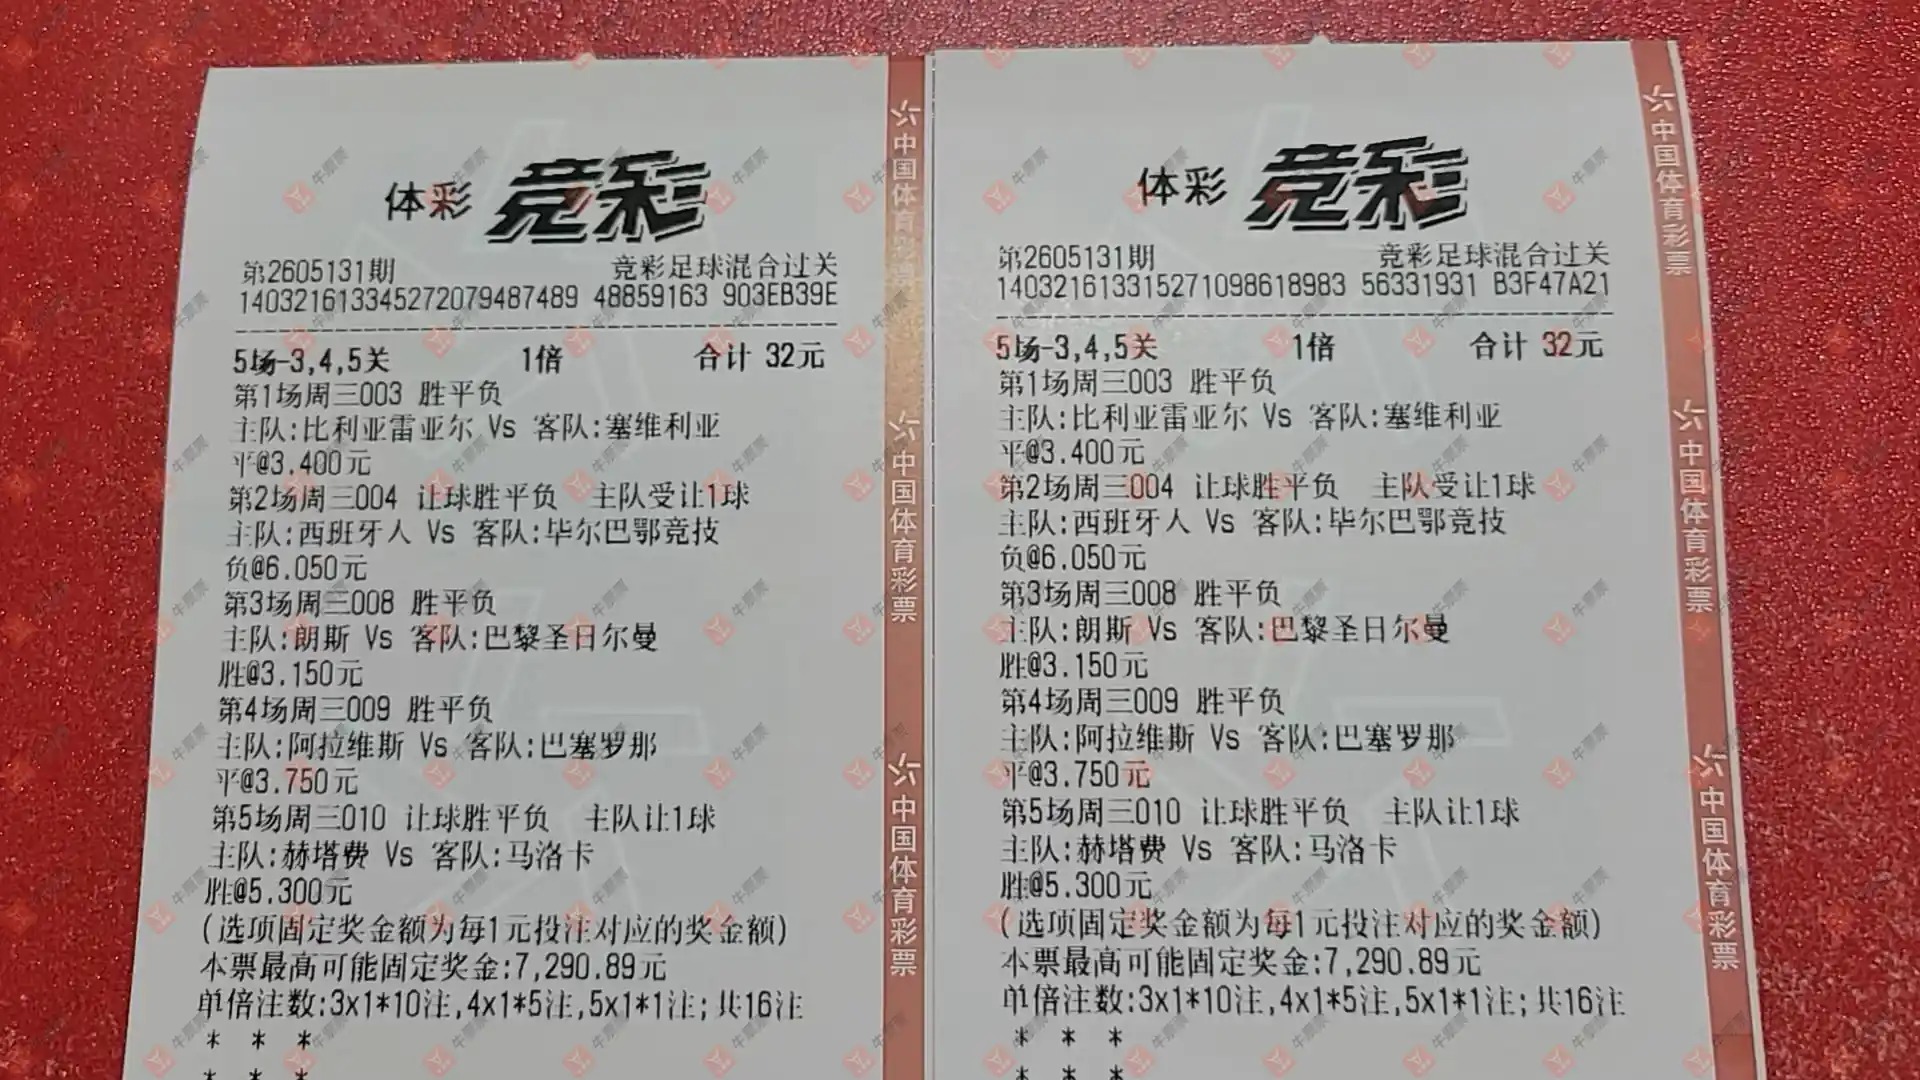 体彩 竞彩
第2605131期 竞彩足球混合过关
140321613345272079487489 48859163 903EB39E
5场-3,4,5关 1倍 合计 32元
第1场周三003 胜平负
主队:比利亚雷亚尔 Vs 客队:塞维利亚
平@3.400元
第2场周三004 让球胜平负 主队受让1球
主队:西班牙人 Vs 客队:毕尔巴鄂竞技
负@6.050元
第3场周三008 胜平负
主队:朗斯 Vs 客队:巴黎圣日尔曼
胜@3.150元
第4场周三009 胜平负
主队:阿拉维斯 Vs 客队:巴塞罗那
平@3.750元
第5场周三010 让球胜平负 主队让1球
主队:赫塔费 Vs 客队:马洛卡
胜@5.300元
(选项固定奖金额为每1元投注对应的奖金额)
本票最高可能固定奖金:7,290.89元
单倍注数:3x1*10注,4x1*5注,5x1*1注;共16注
* * *
* * *
中国体育彩票
中国体育彩票
中国体育彩票
体彩 竞彩
第2605131期 竞彩足球混合过关
140321613315271098618983 56331931 B3F47A21
5场-3,4,5关 1倍 合计 32元
第1场周三003 胜平负
主队:比利亚雷亚尔 Vs 客队:塞维利亚
平@3.400元
第2场周三004 让球胜平负 主队受让1球
主队:西班牙人 Vs 客队:毕尔巴鄂竞技
负@6.050元
第3场周三008 胜平负
主队:朗斯 Vs 客队:巴黎圣日尔曼
胜@3.150元
第4场周三009 胜平负
主队:阿拉维斯 Vs 客队:巴塞罗那
平@3.750元
第5场周三010 让球胜平负 主队让1球
主队:赫塔费 Vs 客队:马洛卡
胜@5.300元
(选项固定奖金额为每1元投注对应的奖金额)
本票最高可能固定奖金:7,290.89元
单倍注数:3x1*10注,4x1*5注,5x1*1注;共16注
* * *
* * *
中国体育彩票
中国体育彩票
中国体育彩票